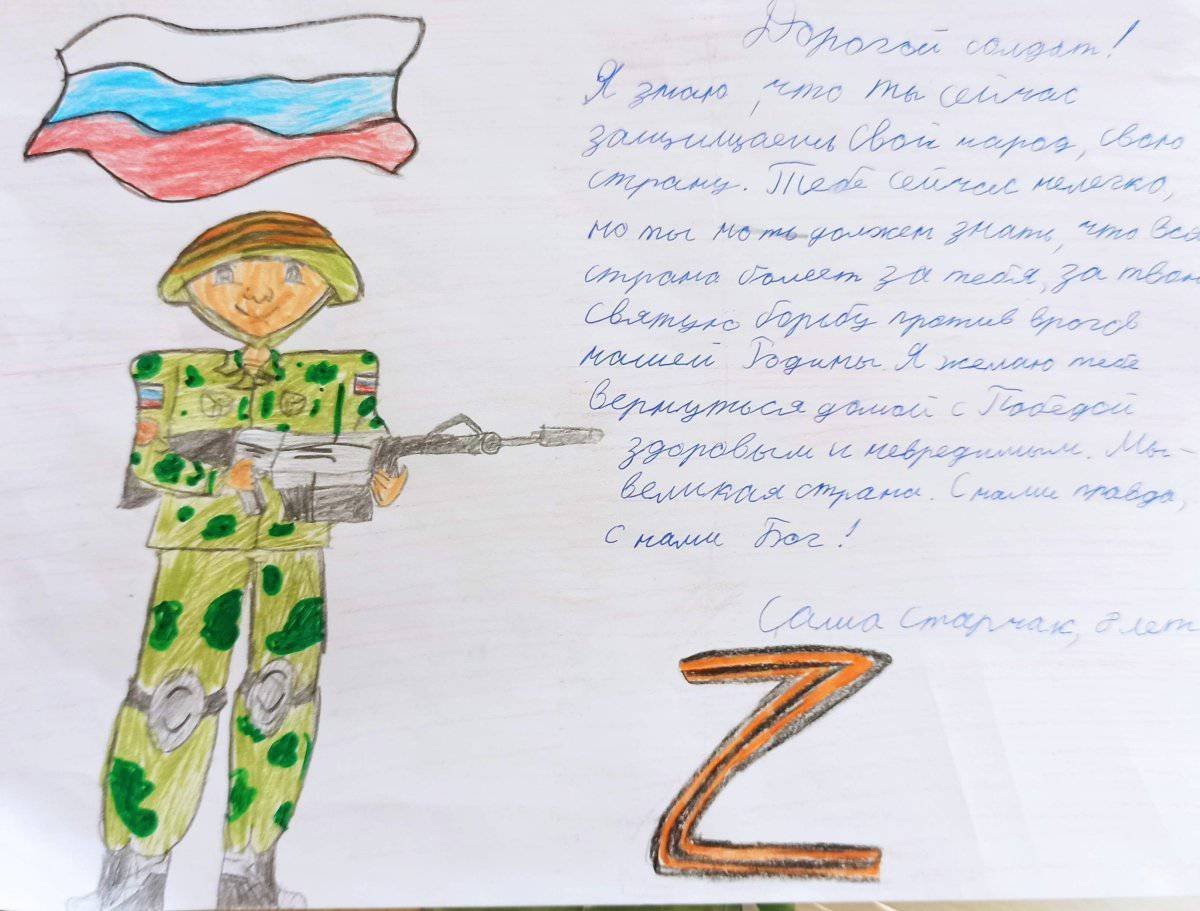 Дорогой солдат!
Я знаю, что ты сейчас
защищаешь свой народ, свою
страну. Тебе сейчас нелегко,
но ты должен знать, что вся
страна болеет за тебя, за твою
святую борьбу против врагов
нашей Родины. Я желаю тебе
вернуться домой с Победой
здоровым и невредимым. Мы-
великая страна. С нами правда,
с нами Бог!
Саша Старчак, 8 лет
Z